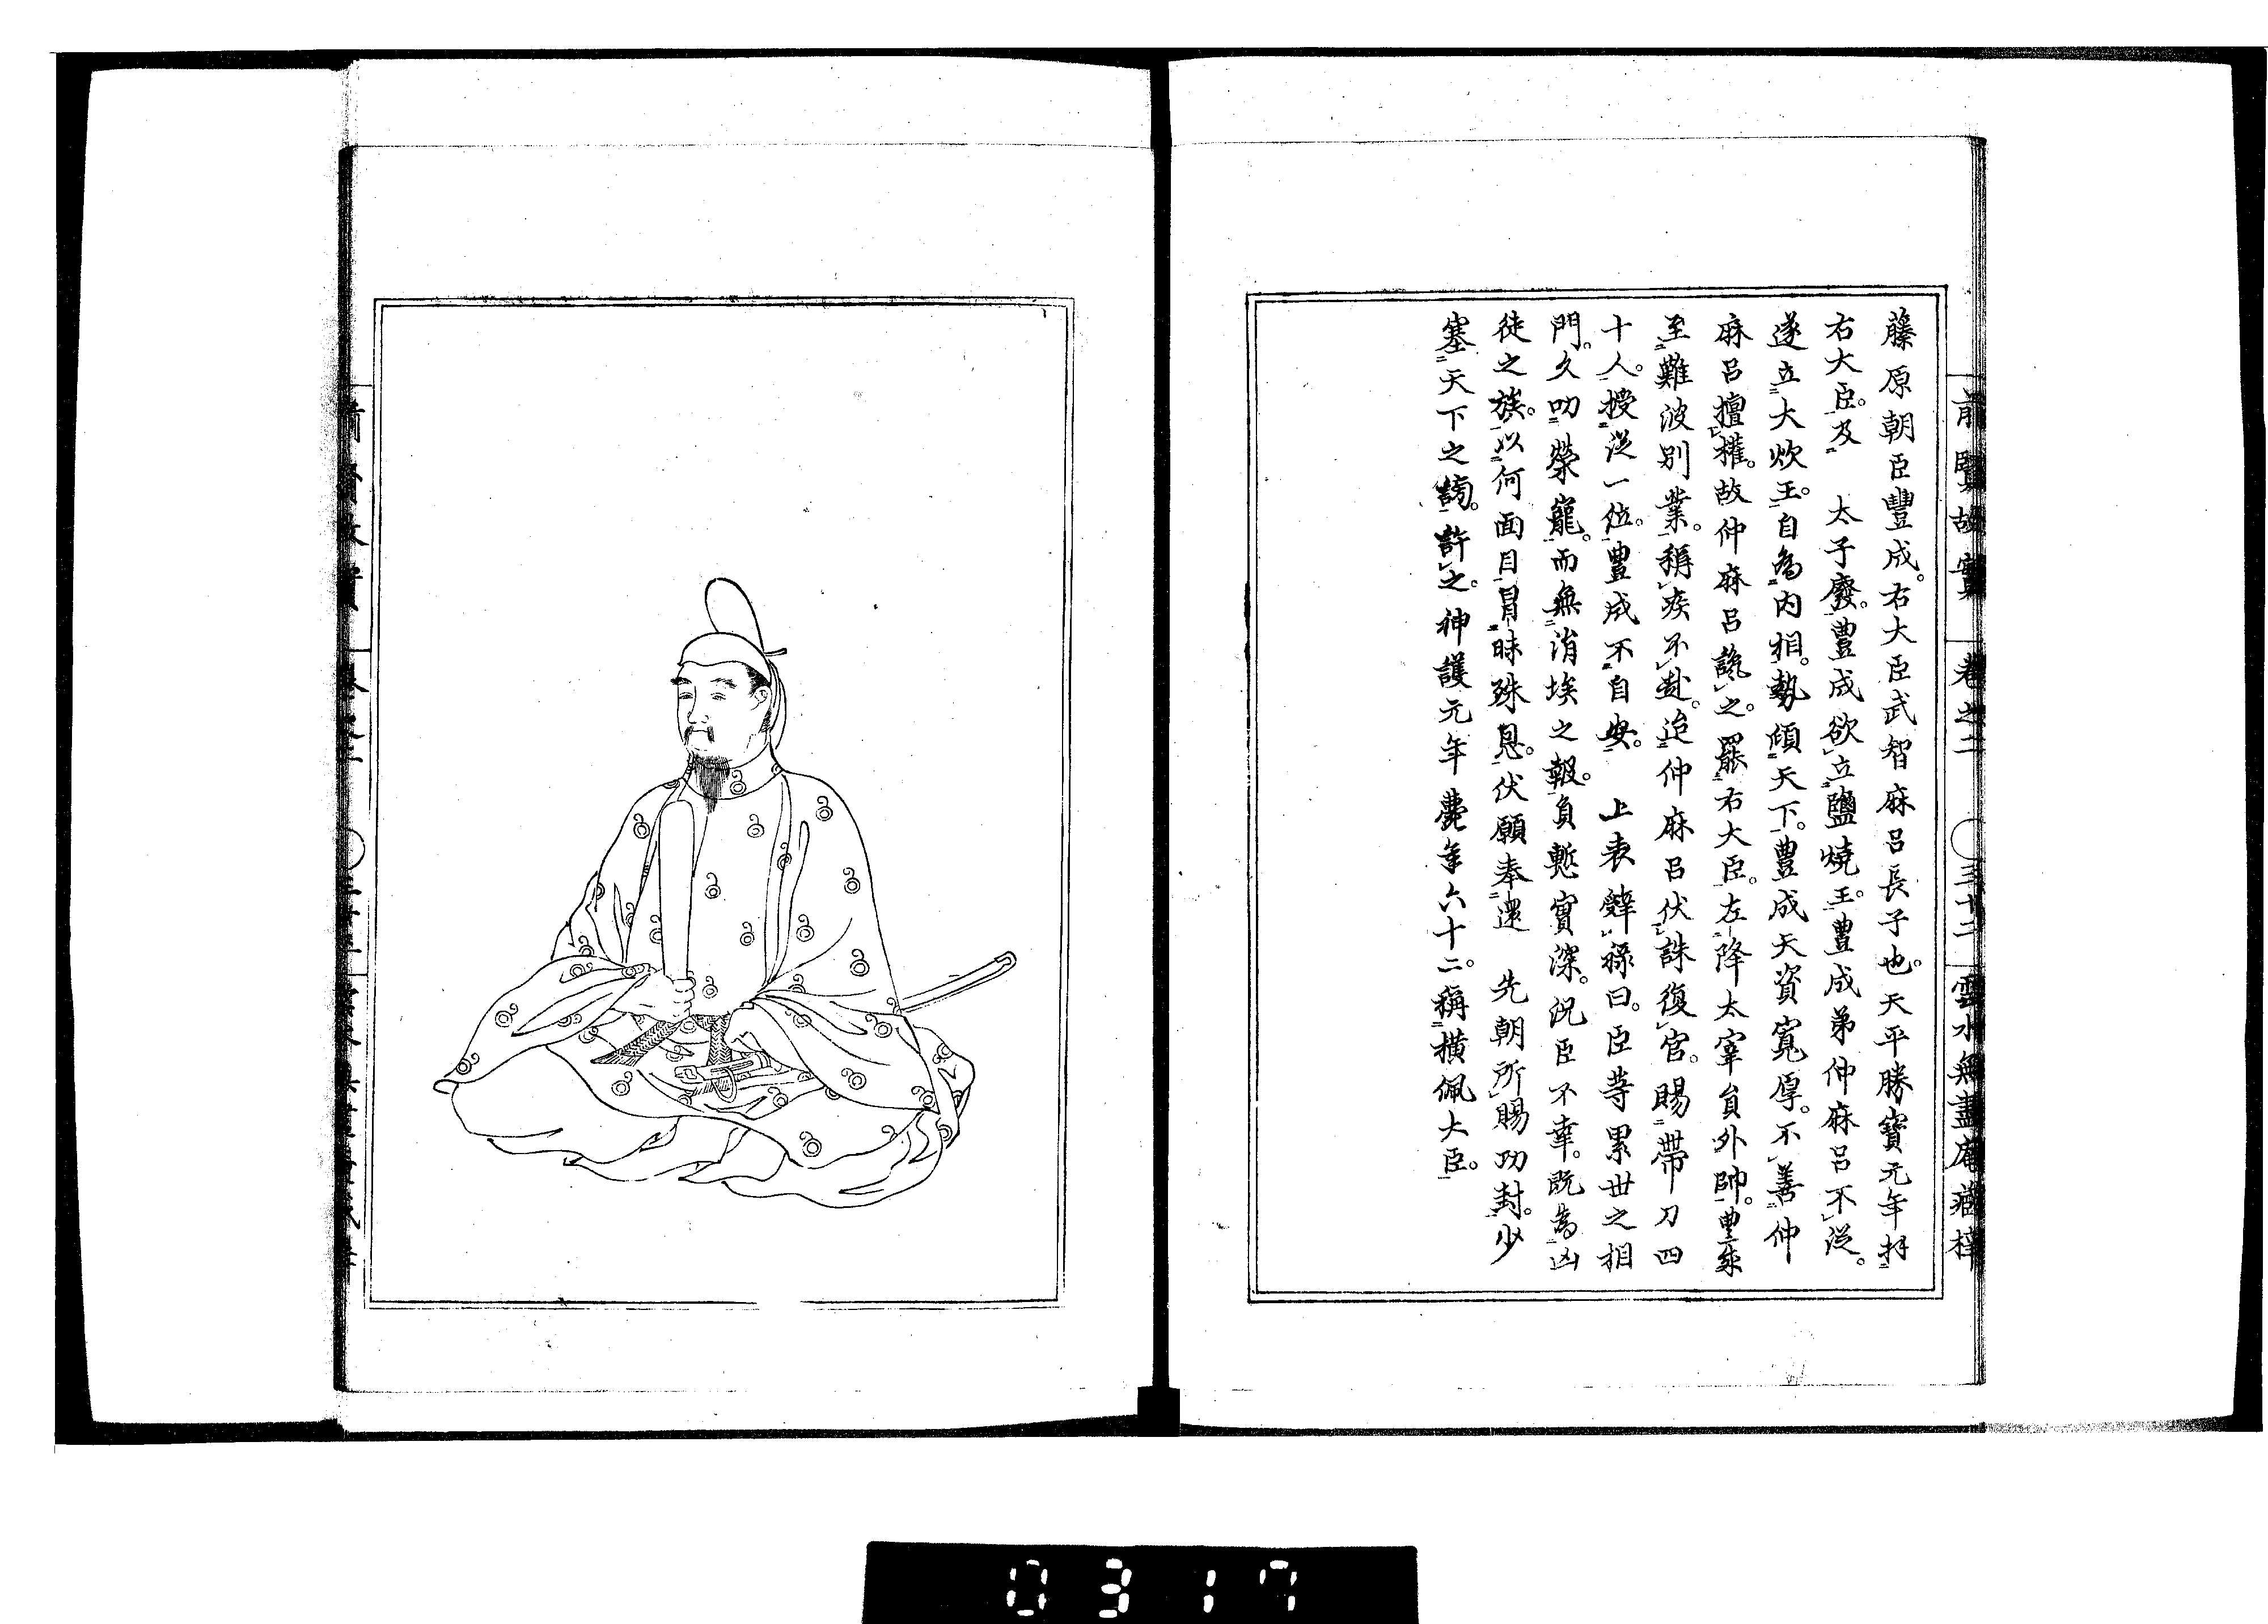 前賢故實 卷之二 〇三十二 雲水無盡庵藏梓
藤原朝臣豐成。右大臣武智麻呂長子也。天平勝寶元年拜
右大臣。及 太子廢。豊成欲立鹽燒王。豊成弟仲麻呂不從。
遂立大炊王。自為內相。勢傾天下。豊成天資寬厚。不善仲
麻呂擅權。故仲麻呂譖之。罷右大臣。左降太宰員外帥。豊成
至難波別業。稱疾不赴。迨仲麻呂伏誅復官。賜帶刀四
十人。授從一位。豊成不自安。 上表辭祿曰。臣等累世之相
門。久叨榮寵。而無涓埃之報。負慙實深。況臣不幸。既為凶
徒之族。以何面目冒昧殊恩。伏願奉還 先朝所賜功封。少
塞天下之謗。許之。神護元年薨年六十二。稱橫佩大臣。
0317